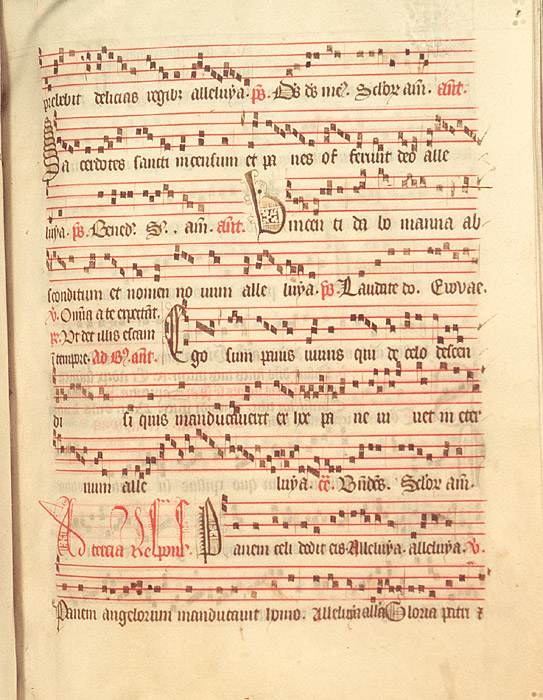 prebebit delicias regibz alleluya. ps. Ds ds me9. Sclor am. ant.
Sacerdotes sancti incensum et pa nes of ferunt deo alle
luya. ps. Bened. S. . am. ant. Vincen ti da bo manna ab
sconditum et nomen no uum alle luya. ps. Laudate do. Evovae.
v. Oculi a te expectat.
R. Vt det illis escam Ego sum panis uiuus qui de celo descen
i tempore. Ad B. ant.
di si quis manducauerit ex hoc pa ne ui uet in eter
num alle luya. Bndcs. Sclor am.
Ad tercia Respons. Panem celi dedit eis Alleluya. alleluya. v.
Panem angelorum manducauit homo. Alleluya alla Gloria patri z